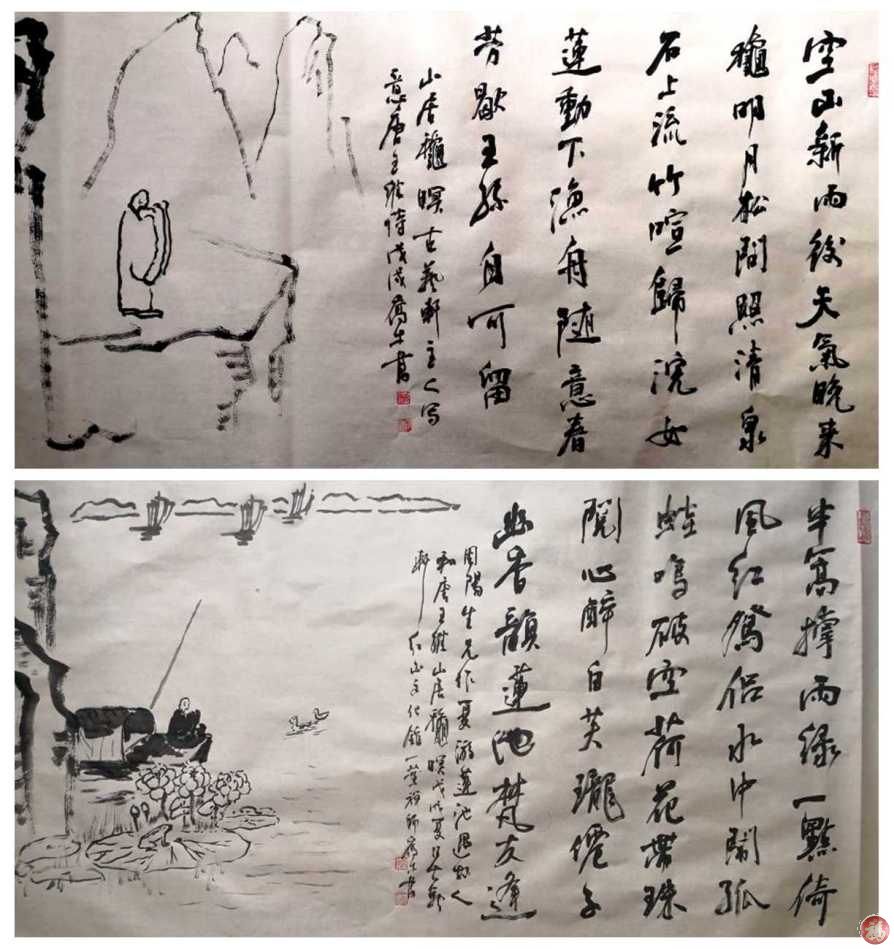 空山新雨後天氣晚来
龝明月松間照清泉
石上流竹喧歸浣女
蓮動下漁舟隨意春
芳歇王孫自可留
山居龝暝古藝軒主人写
意唐王維詩戊戌喬生書
半篙撑雨緑一點倚
風红鴛侣水中鬧孤
蛙鳴破空荷花帶珠
開心醉白芙瓏僊子
幽香韻蓮池梵友逢
周陽生兄作夏游蓮池遇故人
和唐王維山居龝暝戊戌夏日古藝
軒红山文化館一葉禅師喬生書